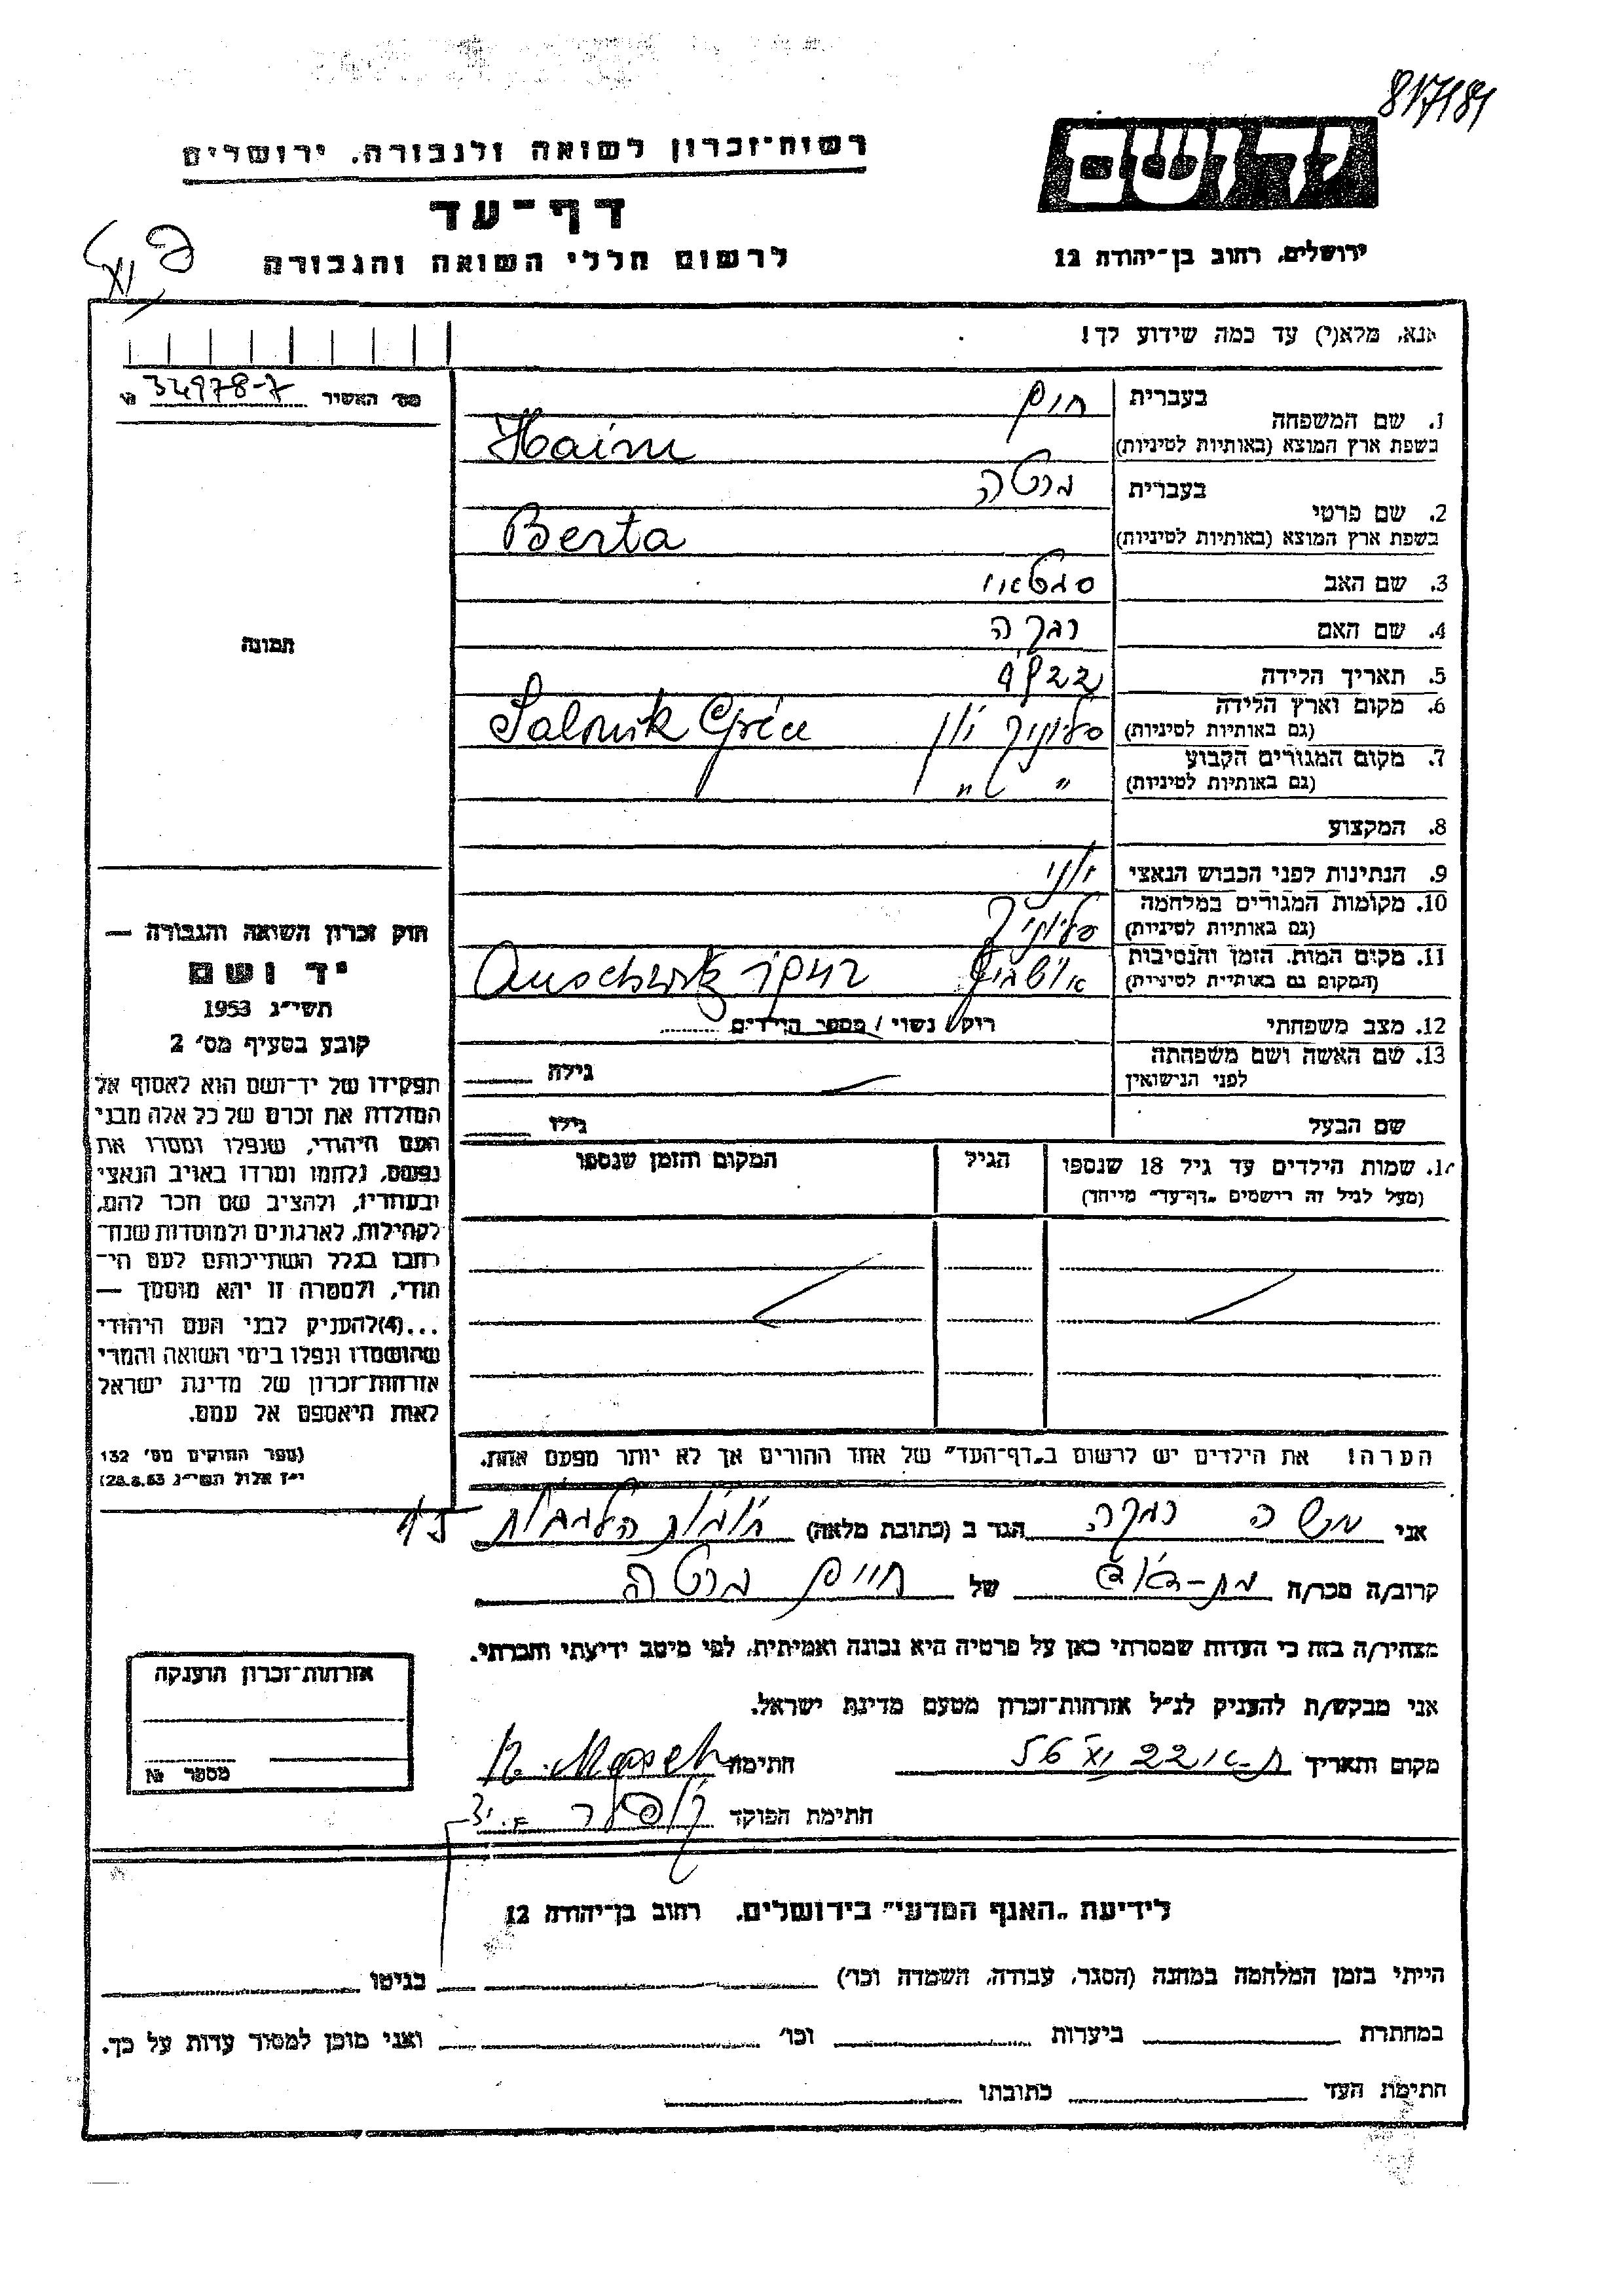 817/81
רשות־זכרון לשואה ולגבורה. ירושלים
דף־עד
לרשום חללי השואה והגבורה
יד ושם
ירושלים, רחוב בן־יהודה 12
אנא, מלא(י) עד כמה שידוע לך!
מס׳ האשיר 34978-7
תמונה
חוק זכרון השואה והגבורה —
יד ושם
תשי״ג 1953
קובע בסעיף מס׳ 2
תפקידו של יד־ושם הוא לאסוף אל
המולדת את זכרם של כל אלה מבני
העם היהודי, שנפלו ומסרו את
נפשם, נלחמו ומרדו באויב הנאצי
ובעוזריו, ולהציב שם וזכר להם,
לקהילות, לארגונים ולמוסדות שנח־
רבו בגלל השתייכותם לעם הי־
הודי, ולמטרה זו יהא מוסמך —
...(4)להעניק לבני העם היהודי
שהושמדו ונפלו בימי השואה והמרי
אזרחות־זכרון של מדינת ישראל
לאות היאספם אל עמם.
(ספר החוקים מס׳ 132
י״ז אלול תשי״ג 28.8.53)
1. שם המשפחה בעברית חיים
בשפת ארץ המוצא (באותיות לטיניות) Haim
2. שם פרטי בעברית ברטה
בשפת ארץ המוצא (באותיות לטיניות) Berta
3. שם האב סבטאי
4. שם האם רבקה
5. תאריך הלידה 1922
6. מקום וארץ הלידה סלוניק יון Salonik Gréce
(גם באותיות לטיניות)
7. מקום המגורים הקבוע " "
(גם באותיות לטיניות)
8. המקצוע
9. הנתינות לפני הכבוש הנאצי יוני
10. מקומות המגורים במלחמה סלוניק
(גם באותיות לטיניות)
11. מקום המות, הזמן והנסיבות
(המקום גם באותיות לטיניות)
12. מצב משפחתי רוק/ נשוי / מספר הילדים
13. שם האשה ושם משפחתה
לפני הנישואין גילה
שם הבעל גילו
14. שמות הילדים עד גיל 18 שנספו הגיל המקום והזמן שנספו
(מעל לגיל זה רישמים „דף־עד״ מייחד)
הערה! את הילדים יש לרשום ב„דף־העד״ של אחד ההורים אך לא יותר מפעם אחת.
אני משה רבקה הגר ב (כתובת מלאה)
קרוב/ה מכר/ה בת-דודה של חיים ברטה
מצהיר/ה בזה כי העדות שמסרתי כאן על פרטיה היא נכונה ואמיתית, לפי מיטב ידיעתי והכרתי.
אני מבקש/ת להעניק לנ״ל אזרחות־זכרון מטעם מדינת ישראל.
מקום ותאריך ת-א 22 חתימה R. Moseh
חתימת הפוקד
אזרחות־זכרון הוענקה
מספר №
לידיעת „האגף המדעי״ בירושלים, רחוב בן־יהודה 12
הייתי בזמן המלחמה במחנה (הסגר, עבודה, השמדה וכו׳) בגיטו
במחתרת ביערות וכו׳ ואני מוכן למסור עדות על כך.
חתימת העד כתובתו